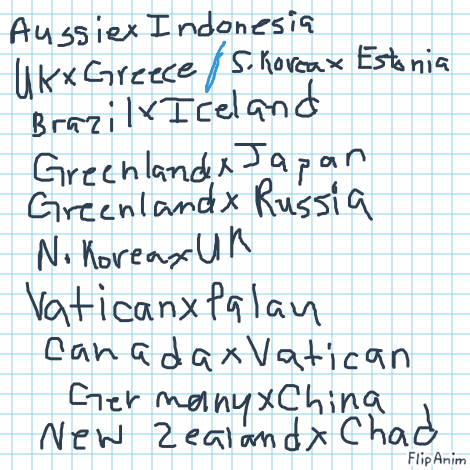 AussiexIndonesia
UKxGreece / S.Koreax Estonia
BrazilxIceland
GreenlandxJapan
Greenlandx Russia
N.KoreaxUK
VaticanxPalau
CanadaxVatican
GermanyxChina
New Zealandx Chad
FlipAnim